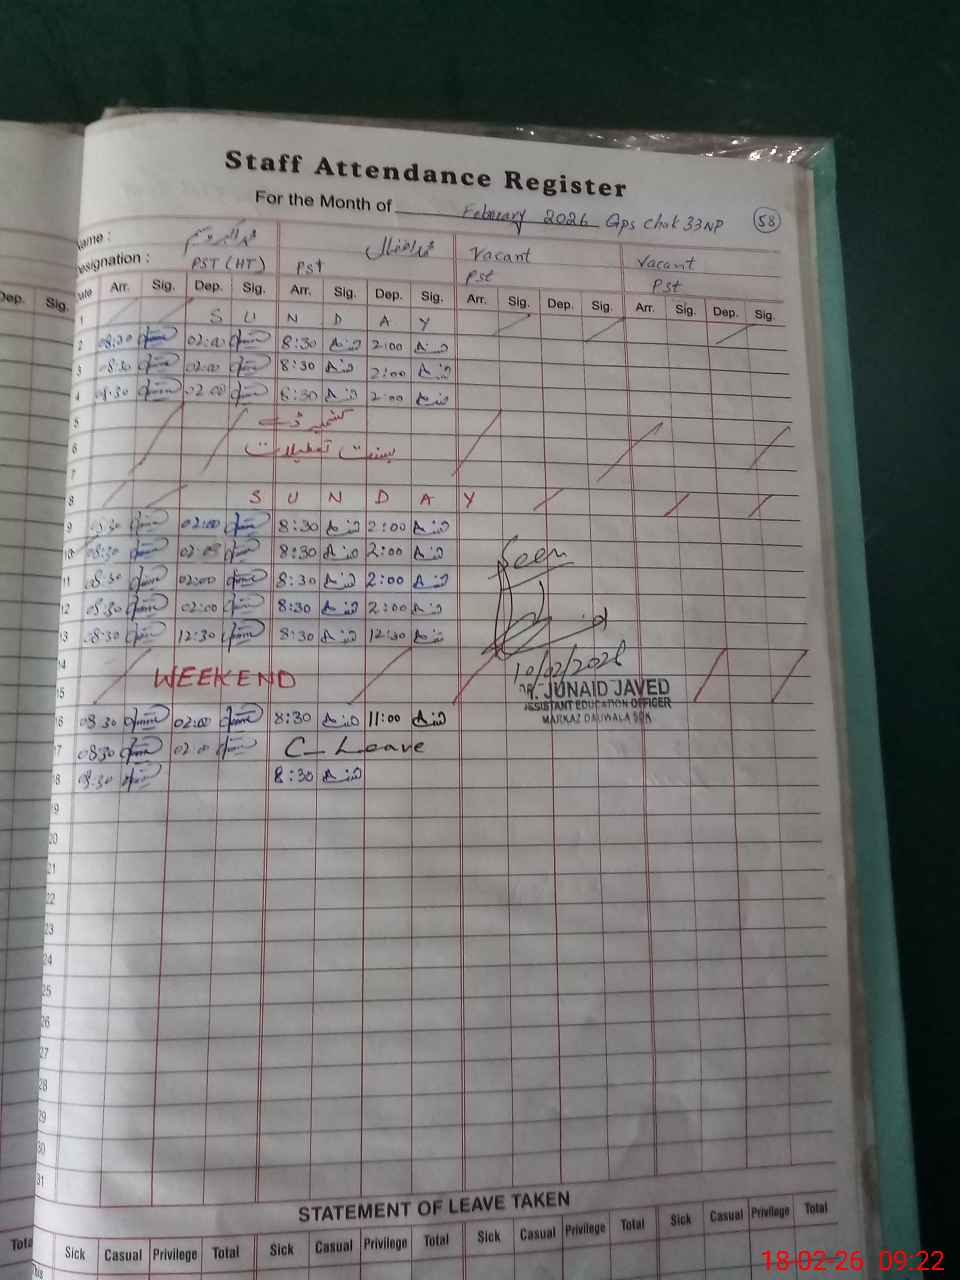 Staff Attendance Register
For the Month of February 2026 Gps Chak 33NP 58
Name : Vacant Vacant
Designation : PST (HT) Pst Pst Pst
Date Arr. Sig. Dep. Sig. Arr. Sig. Dep. Sig. Arr. Sig. Dep. Sig. Arr. Sig. Dep. Sig.
1 S U N D A Y
2 08:30 02:00 8:30 2:00
3 08:30 02:00 8:30 2:00
4 08:30 02:00 8:30 2:00
5 کشمیر ڈے
6 بسنت تعطیلات
7
8 S U N D A Y
9 08:30 02:00 8:30 2:00
10 08:30 02:00 8:30 2:00
Seen
11 08:30 02:00 8:30 2:00
12 08:30 02:00 8:30 2:00
13 08:30 12:30 8:30 12:30
14 WEEKEND
10/02/2026
15
JUNAID JAVED
ASSISTANT EDUCATION OFFICER
MARKAZ DAUWALA
16 08:30 02:00 8:30 11:00
17 08:30 02:00 C-Leave
18 08:30 8:30
19
20
21
22
23
24
25
26
27
28
29
30
31
STATEMENT OF LEAVE TAKEN
Sick Casual Privilege Total Sick Casual Privilege Total Sick Casual Privilege Total Sick Casual Privilege Total
Dep. Sig.
Total
18-02-26 09:22